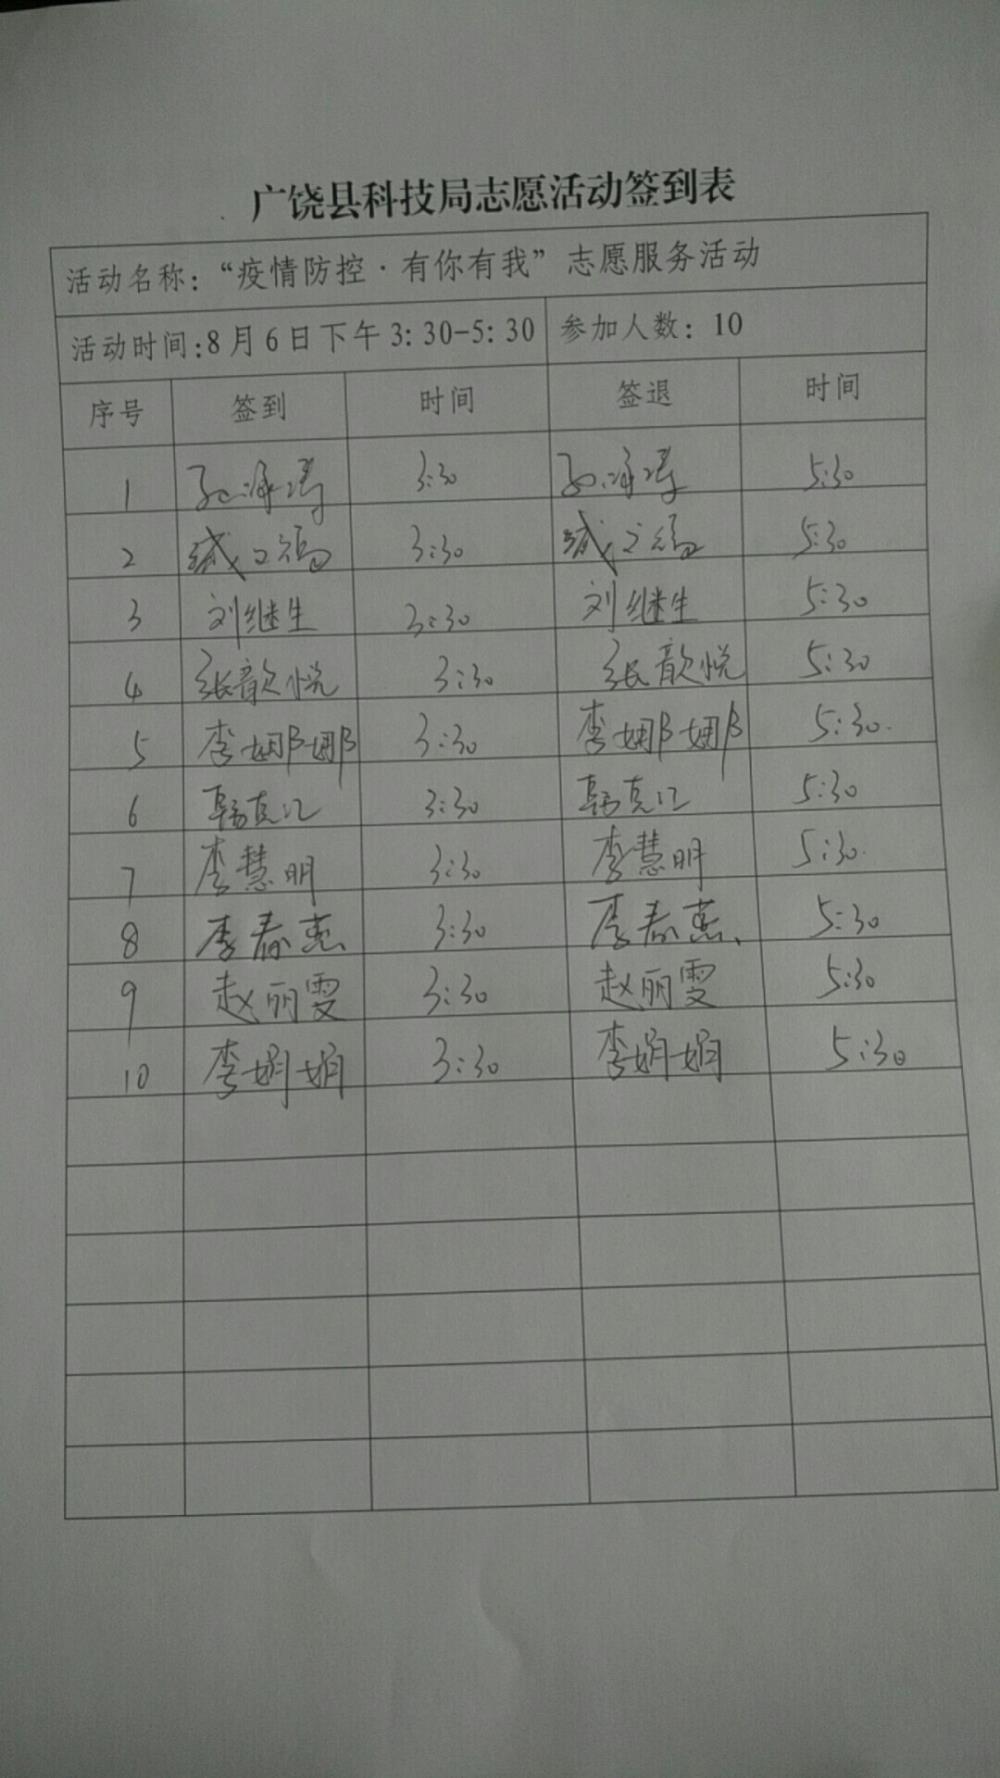 广饶县科技局志愿活动签到表
活动名称：“疫情防控·有你有我”志愿服务活动
活动时间:8月6日下午3:30-5:30 参加人数：10
序号 签到 时间 签退 时间
1 3:30 5:30
2 3:30 5:30
3 刘继生 3:30 刘继生 5:30
4 张歆悦 3:30 张歆悦 5:30
5 李娜娜 3:30 李娜娜 5:30
6 韩克江 3:30 韩克江 5:30
7 李慧明 3:30 李慧明 5:30
8 李春燕 3:30 李春燕 5:30
9 赵丽雯 3:30 赵丽雯 5:30
10 李娟娟 3:30 李娟娟 5:30